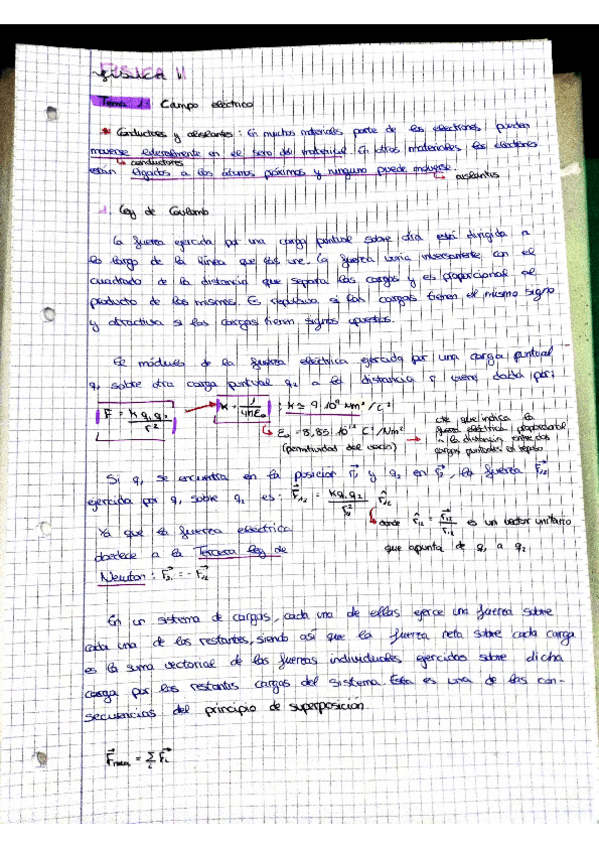 FÍSICA II
Tema 1: Campo eléctrico
* Conductores y aislantes: En muchos materiales parte de los electrones pueden
moverse libremente en el seno del material. En otros materiales los electrones
↳ conductores
están ligados a los átomos próximos y ninguno puede moverse.
↳ aislantes
1. Ley de Coulomb
La fuerza ejercida por una carga puntual sobre otra está dirigida a
lo largo de la línea que las une. La fuerza varía inversamente con el
cuadrado de la distancia que separa las cargas y es proporcional al
producto de las mismas. Es repulsiva si las cargas tienen el mismo signo
y atractiva si las cargas tienen signos opuestos.
El módulo de la fuerza eléctrica ejercida por una carga puntual
q₁ sobre otra carga puntual q₂ a la distancia r viene dada por:
F = K q₁ q₂ / r² → K = 1 / 4πε₀ ; K ≃ 9·10⁹ Nm²/C²
↳ ε₀ = 8,85·10⁻¹² C²/Nm²
(permitividad del vacío)
→ cte que indica la
fuerza eléctrica proporcional
a la distancia entre dos
cargas puntuales en reposo
Si q₁ se encuentra en la posición r⃗₁ y q₂ en r⃗₂, la fuerza F⃗₁₂
ejercida por q₁ sobre q₂ es: F⃗₁₂ = K q₁ q₂ / r²₁₂ r̂₁₂
↳ donde r̂₁₂ = r⃗₁₂ / r₁₂ es un vector unitario
que apunta de q₁ a q₂
Ya que la fuerza eléctrica
obedece a la Tercera Ley de
Newton: F⃗₂₁ = - F⃗₁₂
En un sistema de cargas, cada una de ellas ejerce una fuerza sobre
cada una de las restantes, siendo así que la fuerza neta sobre cada carga
es la suma vectorial de las fuerzas individuales ejercidas sobre dicha
carga por las restantes cargas del sistema. Esta es una de las con-
secuencias del principio de superposición.
= Σ F⃗ᵢ